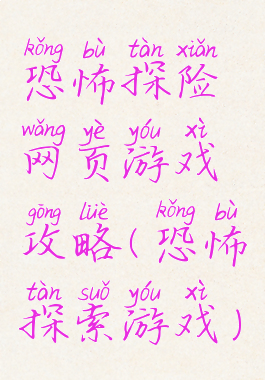 kǒng bù tàn xiǎn
恐怖探险
wǎng yè yóu xì
网页游戏
gōng lüè kǒng bù
攻略(恐怖
tàn suǒ yóu xì
探索游戏)